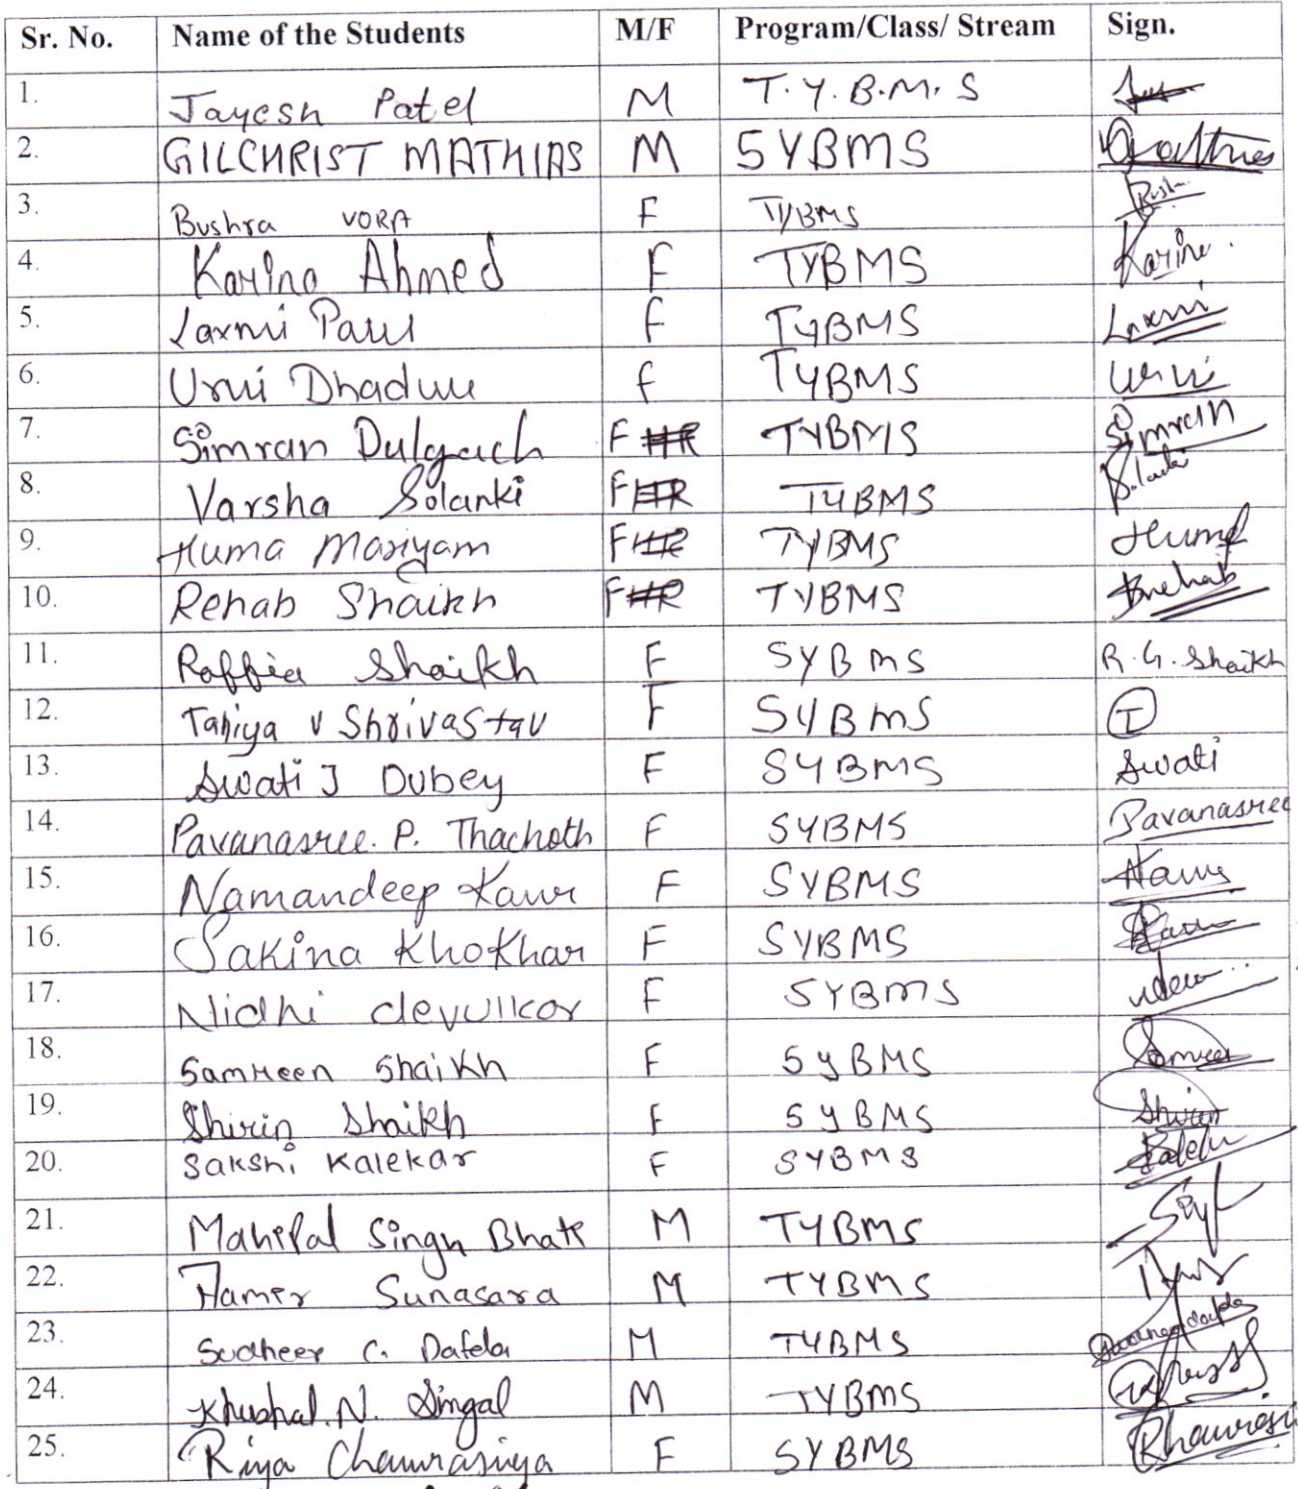 Sr. No. Name of the Students M/F Program/Class/ Stream Sign.
1. Jayesh Patel M T.Y.B.M.S
2. GILCHRIST MATHIAS M SYBMS
3. Bushra VORA F TYBMS
4. Karina Ahmed F TYBMS Karina.
5. Laxmi Paul F TyBMS Laxmi
6. Urmi f TYBMS Urmi
7. Simran Dulgach F TYBMS Simran
8. Varsha Solanki F TYBMS
9. Huma Mariyam F TYBMS Huma
10. Rehab Shaikh F TYBMS Rehab
11. Raffia Shaikh F SYBMS R.G. Shaikh
12. Taniya V Shrivastav F SYBMS T
13. Swati J Dubey F SYBMS Swati
14. Pavanasree. P. Thachoth F SYBMS Pavanasree
15. Namandeep Kaur F SYBMS Kaur
16. Sakina Khokhar F SYBMS
17. Nidhi devulkar F SYBMS
18. Samreen Shaikh F SyBMS Samreen
19. Shirin Shaikh F SyBMS Shirin
20. Sakshi Kalekar F SYBMS
21. Mahipal Singh Bhati M TYBMS Singh
22. Sunasara M TYBMS
23. Sudheer C. Dafda M TYBMS
24. Khushal. N. Singal M TYBMS
25. Riya Chaurasiya F SYBMS